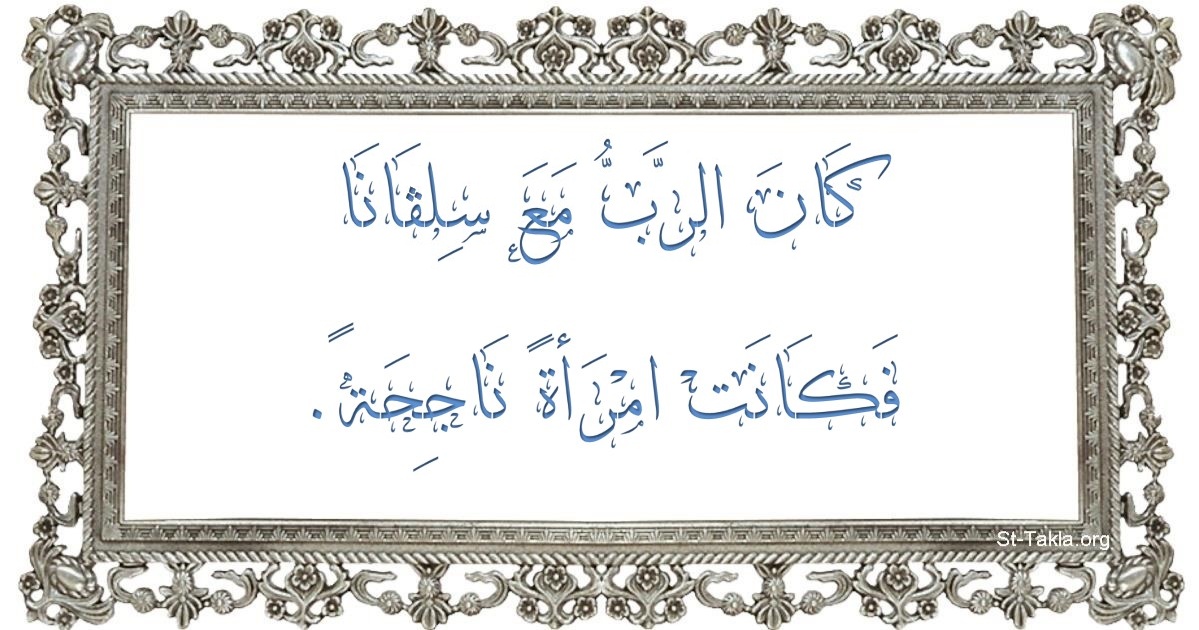 كَانَ الرَّبُّ مَعَ سِلڤَانَا
فَكَانَتْ امْرَأَةً نَاجِحَةً.
St-Takla.org